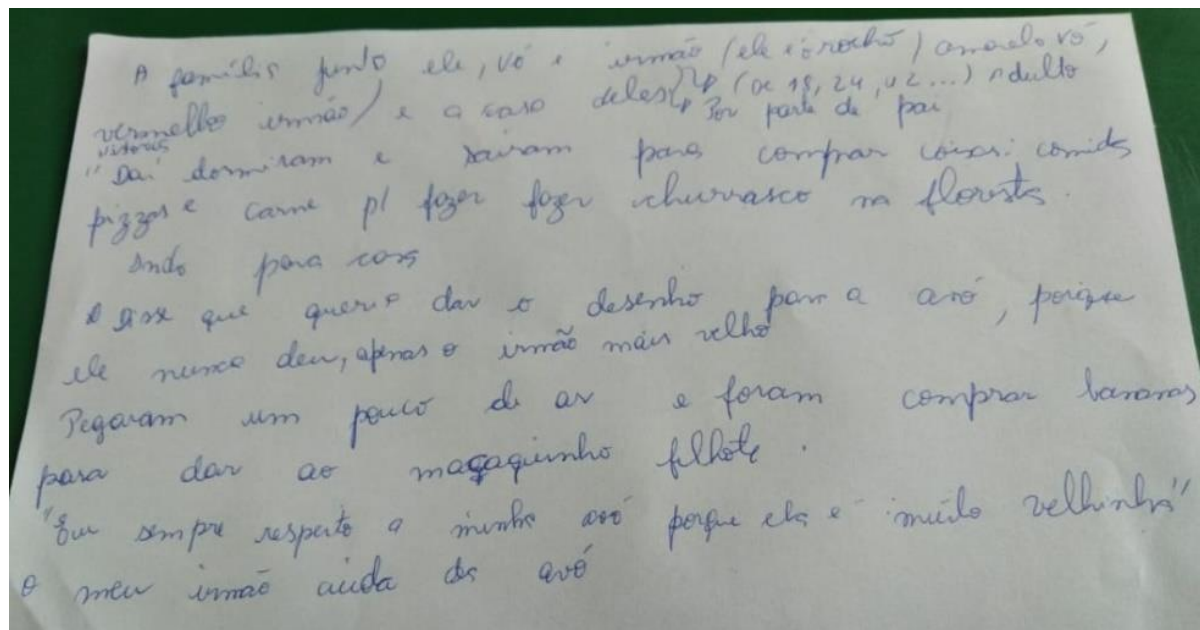 A família junto ele, vó e irmão (ele é o roxo) amarelo vó,
vermelho irmão) e a casa deles (de 18, 24, 42 ...) adulto
Por parte de pai
"Daí dormiram e sairam para comprar coisas: comida
pizzas e carne p/ fazer fazer churrasco na floresta.
indo para casa
disse que queria dar o desenho para a avó, porque
ele nunca deu, apenas o irmão mais velho
Pegaram um pouco de ar e foram comprar bananas
para dar ao macaquinho filhote.
"Eu sempre respeito a minha avó porque ela é muito velhinha"
O meu irmão cuida da avó